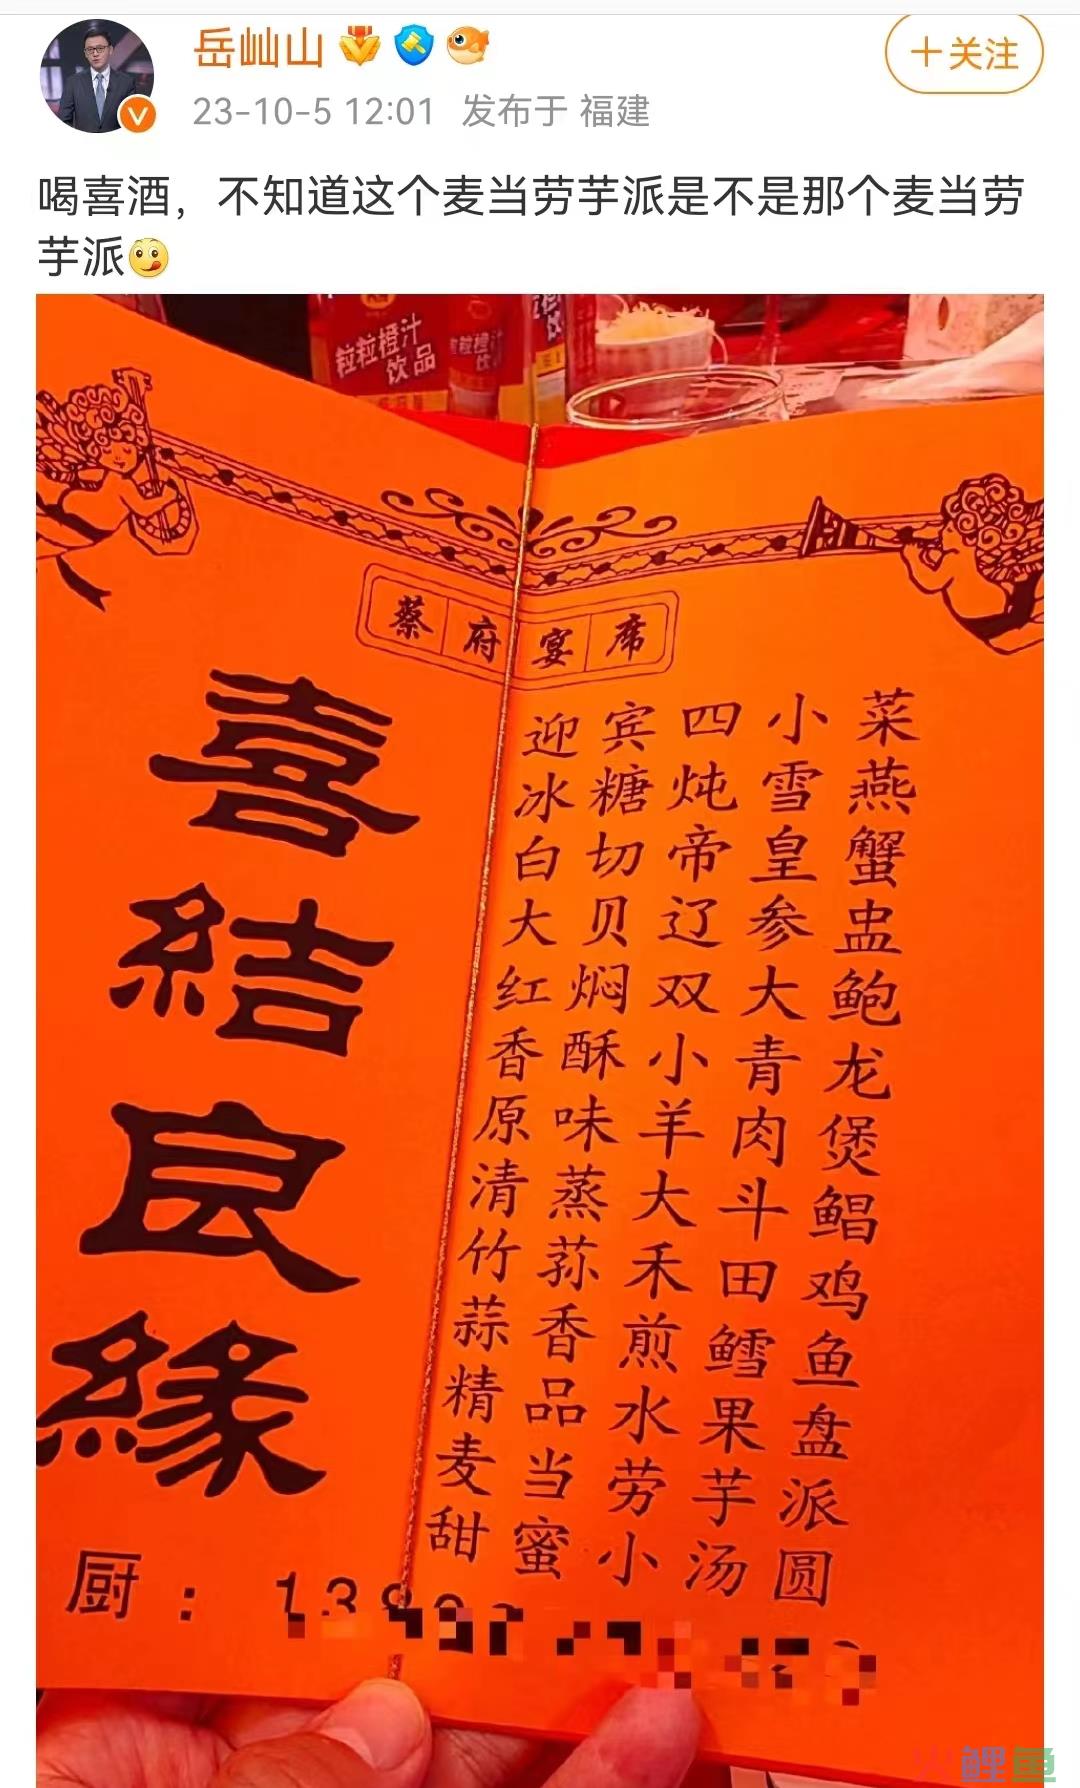 岳屾山
+关注
23-10-5 12:01 发布于 福建
喝喜酒，不知道这个麦当劳芋派是不是那个麦当劳
芋派
粒粒橙汁
饮品
粒粒橙汁
饮
蔡府宴席
喜结良緣
迎宾四小菜
冰糖炖雪燕
白切帝皇蟹
大贝辽参盅
红焖双大鲍
香酥小青龙
原味羊肉煲
清蒸大斗鲳
竹荪禾田鸡
蒜香煎鳕鱼
精品水果盘
麦当劳芋派
甜蜜小汤圆
厨：13
火鲤鱼